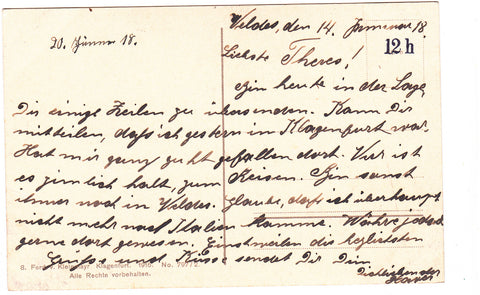 Veldes, den 14. Jannuar 18.
20. Jänner 18.
12 h
Liebste Theres!
Bin heute in der Lage,
Dir einige Zeilen zu übersenden. Kann Dir
mitteilen, daß ich gestern in Klagenfurt war.
Hat mir ganz gut gefallen dort. Nur ist
es zimlich kalt, zum Reisen. Bin sonst
immer noch in Veldes. Glaube, daß ich überhaupt
nicht mehr nach Italien komme. Währe jedoch
gerne dort gewesen. Einstweilen die herzlichsten
Grüße und Küsse sendet Dir Dein
Dichliebender
S. Ferd. v. Kleinmayr Klagenfurt. 1916. No.
Alle Rechte vorbehalten.